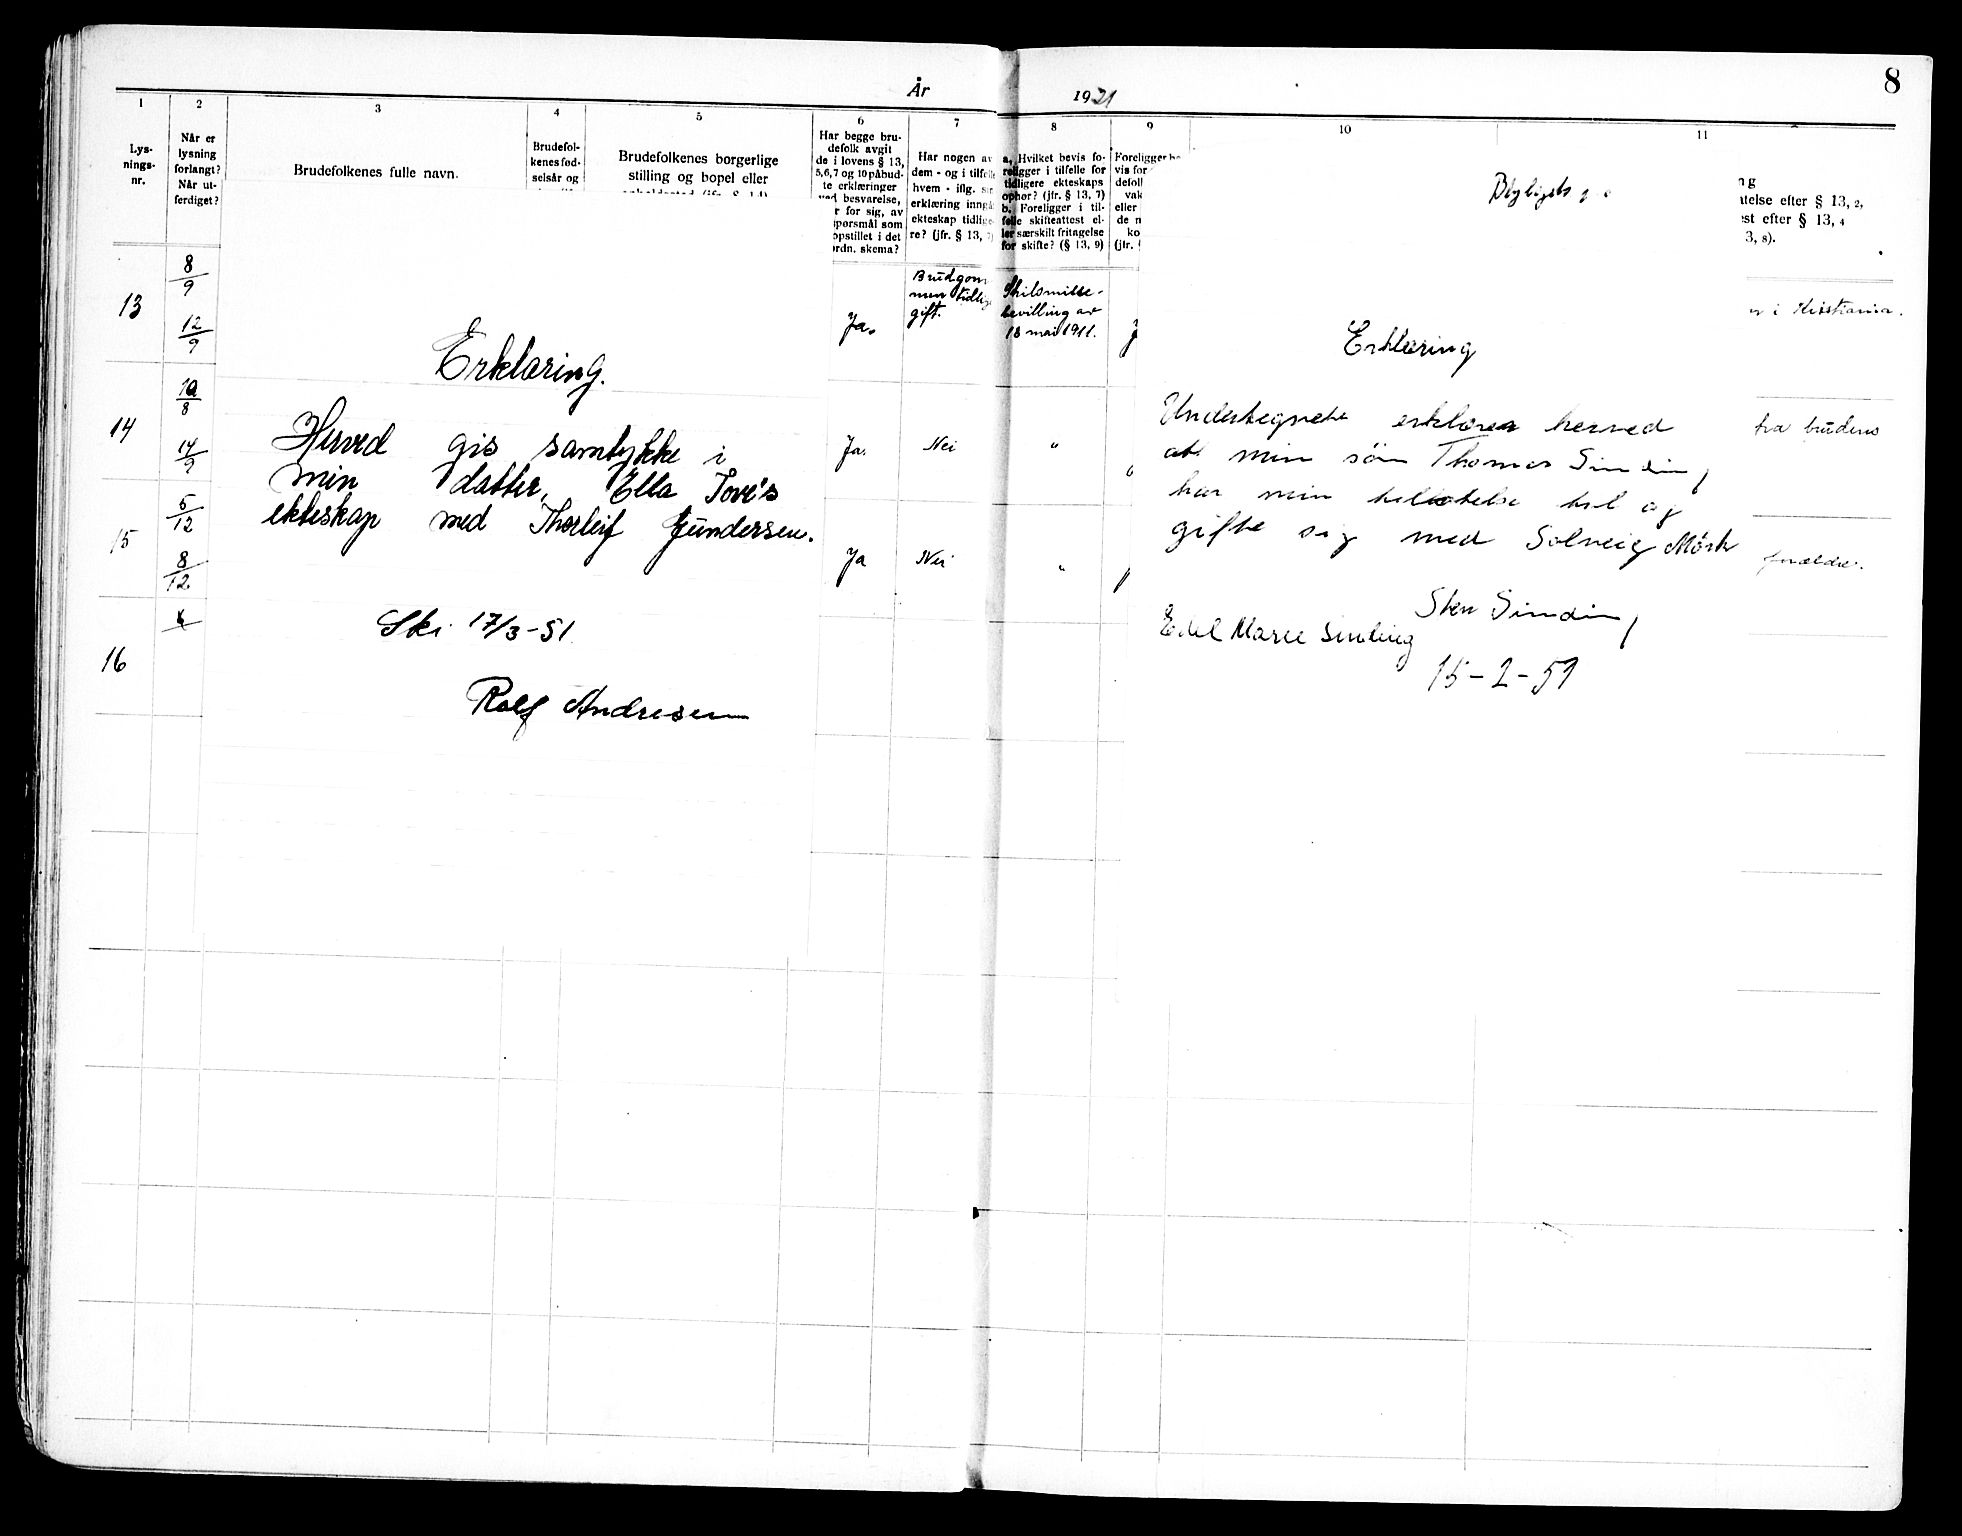 År 1921
8
1
2
3
4
5
6
7
8
9
10
11
Lys-
nings-
nr.
Når er
lysning
forlangt?
Når ut-
ferdiget?
Brudefolkenes fulle navn.
Brudefol-
kenes fød-
selsår og
Brudefolkenes borgerlige
stilling og bopel eller
Har begge bru-
defolk avgit
de i lovens § 13,
5,6,7 og 10 påbud-
te erklæringer
besvarelse,
r for sig, av
spørsmål som
opstillet i det
ordn. skema?
Har nogen av
dem - og i tilfelle
hvem - iflg. sin
erklæring inngå
ekteskap tidlige
re? (jfr. § 13,
a. Hvilket bevis fo-
religger i tilfelle for
tidligere ekteskaps
ophør? (jfr. § 13, 7)
b. Foreligger i til-
felle skifteattest el-
ler særskilt fritagelse
for skifte? (§ 13, 9)
Foreligger be
vis for
defoll
vak
eller
de n
ko
(jfr.
ng
atelse efter § 13, 2,
est efter § 13, 4
3, 8).
13
8/9
12/9
Ja.
Brudgom
men tidlig
gift.
Skilsmisse-
bevilling av
18 mai 1911.
i Kristiania.
14
10/8
14/9
Ja.
Nei
"
fra brudens
15
5/12
8/12
Ja
Nei
"
forældre.
16
Erklæring.
Herved gis samtykke i
min datter, Ella Tove's
ekteskap med Thorleif Gundersen.
Ski 17/3-51
Rolf Andresen
Erklæring
Undertegnete erklærer herved
at min sønn Thomas Sinding
har min tillatelse til og
gifte sig med Solveig Mørk
Sten Sinding
Edel Marie Sinding
15-2-51